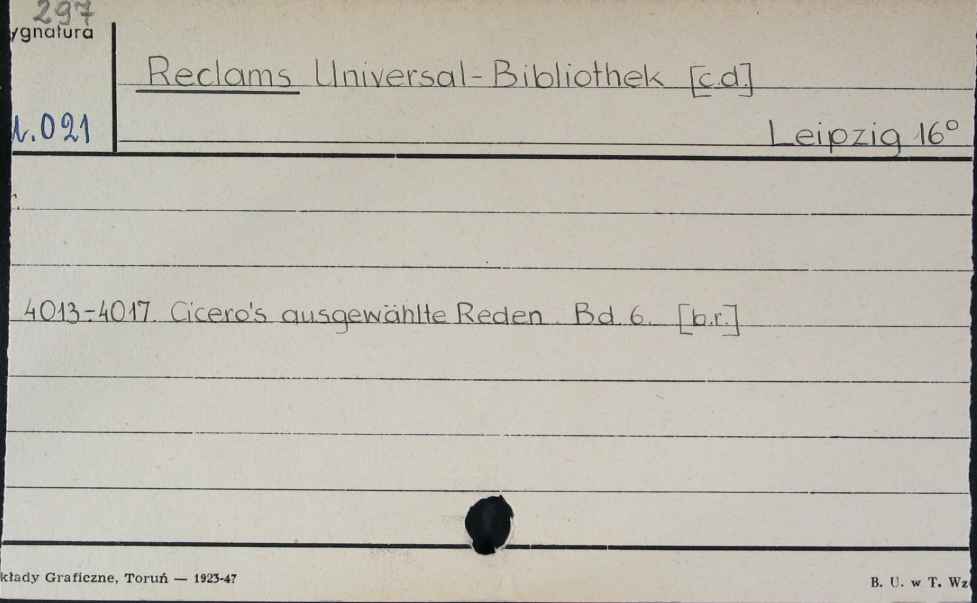 297
ygnatura
Reclams Universal-Bibliothek [c.d.]
1.021
Leipzig 16°
4013-4017. Cicero's ausgewählte Reden. Bd. 6. [b.r.]
kłady Graficzne, Toruń — 1923-47
B. U. w T. Wz